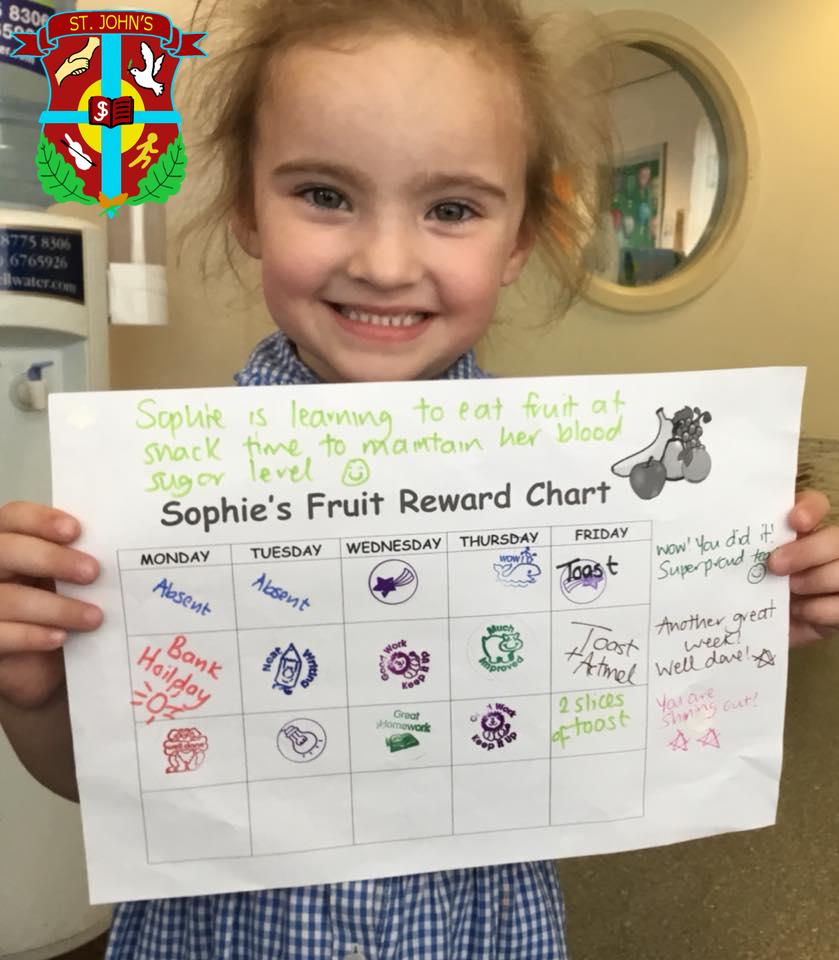 ST. JOHN'S
8306
8775 8306
6765926
llwater.com
Sophie is learning to eat fruit at
snack time to maintain her blood
sugar level
Sophie's Fruit Reward Chart
MONDAY TUESDAY WEDNESDAY THURSDAY FRIDAY
Absent Absent WOW! Toast
wow! You did it!
Superproud
Bank
Hoilday
Neat Writing
Good Work Keep it up
Much
Improved
Toast
+ Actmel
Another great
week!
Well done!
Well done
Great
Homework
Good Work
Keep It Up
2 slices
of toast
You are
shining out!